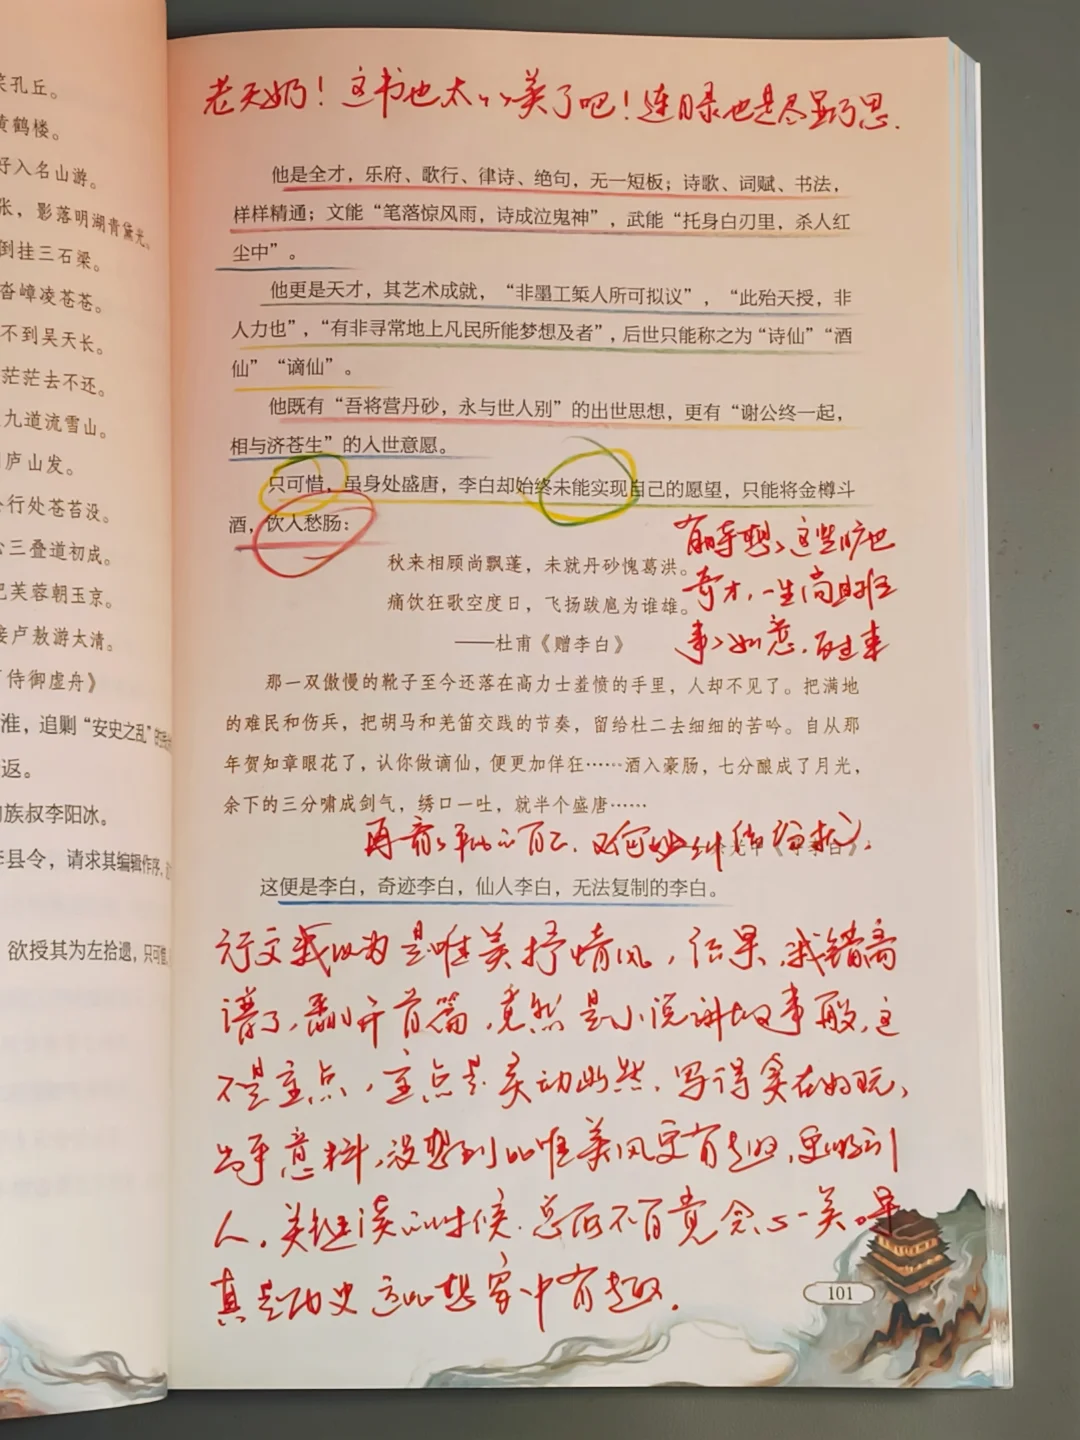 笑孔丘。
黄鹤楼。
好入名山游。
张，影落明湖青黛光。
倒挂三石梁。
沓嶂凌苍苍。
不到吴天长。
茫茫去不还。
九道流雪山。
庐山发。
行处苍苔没。
三叠道初成。
把芙蓉朝玉京。
接卢敖游太清。
侍御虚舟》
淮，追剿“安史之乱”的
返。
族叔李阳冰。
县令，请求其编辑作序，
欲授其为左拾遗，只可惜，
老天奶！这书也太太美了吧！连目录也是尽显巧思.
他是全才，乐府、歌行、律诗、绝句，无一短板；诗歌、词赋、书法，
样样精通；文能“笔落惊风雨，诗成泣鬼神”，武能“托身白刃里，杀人红
尘中”。
他更是天才，其艺术成就，“非墨工椠人所可拟议”，“此殆天授，非
人力也”，“有非寻常地上凡民所能梦想及者”，后世只能称之为“诗仙”“酒
仙”“谪仙”。
他既有“吾将营丹砂，永与世人别”的出世思想，更有“谢公终一起，
相与济苍生”的入世意愿。
只可惜，虽身处盛唐，李白却始终未能实现自己的愿望，只能将金樽斗
酒，饮入愁肠：
秋来相顾尚飘蓬，未就丹砂愧葛洪。
痛饮狂歌空度日，飞扬跋扈为谁雄。
——杜甫《赠李白》
有时想想这些旷世
奇才，一生尚且难
事事如意.
那一双傲慢的靴子至今还落在高力士羞愤的手里，人却不见了。把满地
的难民和伤兵，把胡马和羌笛交践的节奏，留给杜二去细细的苦吟。自从那
年贺知章眼花了，认你做谪仙，便更加佯狂……酒入豪肠，七分酿成了月光，
余下的三分啸成剑气，绣口一吐，就半个盛唐……
再看看平凡的自己，又何必纠结
这便是李白，奇迹李白，仙人李白，无法复制的李白。
行文我以为是唯美抒情风，结果，我错离
谱了，翻开首篇，竟然是小说讲故事般，这
不是重点，重点是灵动幽默，写得实在好玩，
出乎意料，没想到比唯美风更有趣，更吸引
人。关键读的时候.总所不自觉会心一美。
真是历史这比想象中有趣.
101